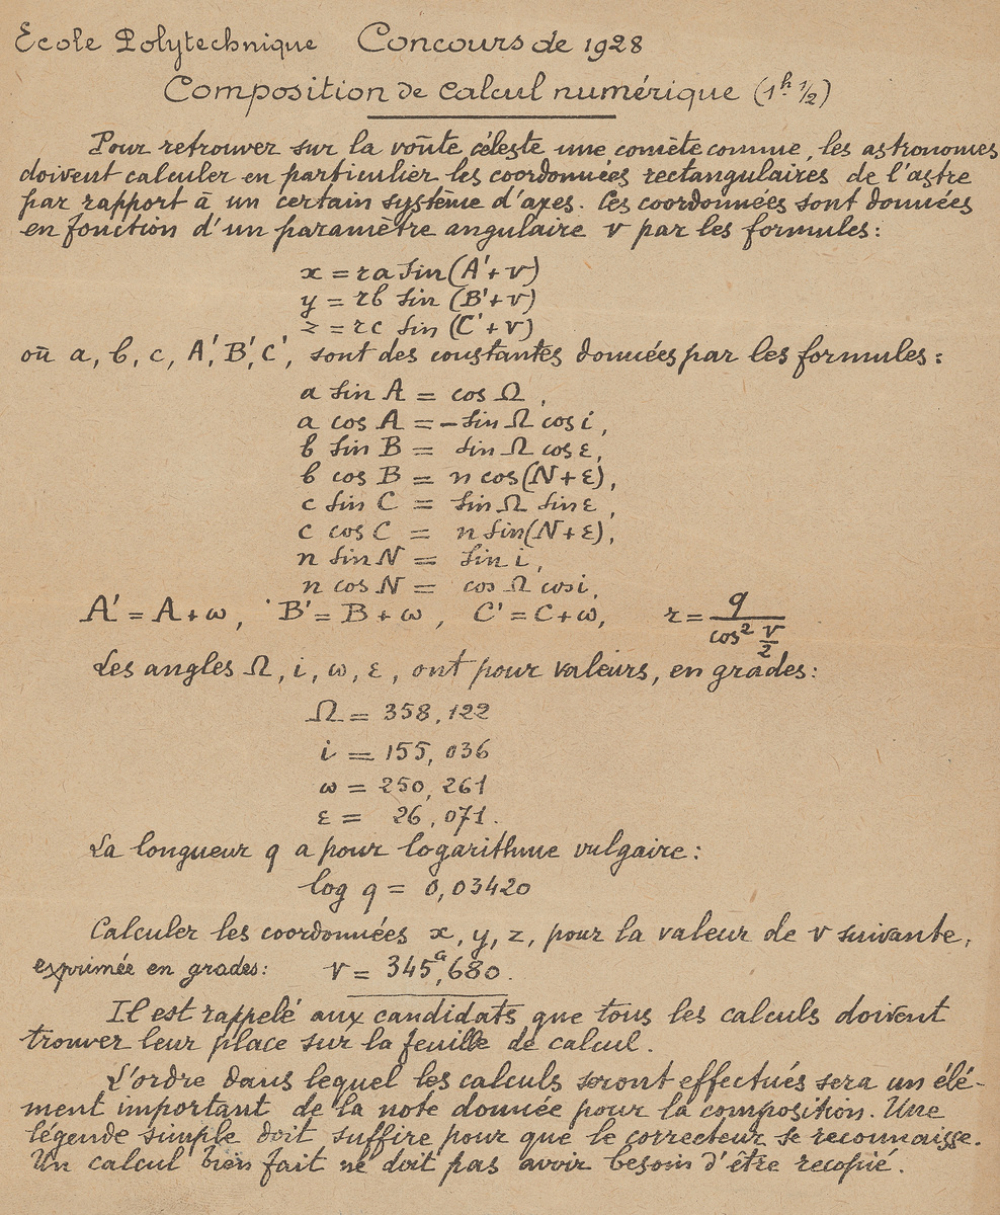 Ecole Polytechnique Concours de 1928
Composition de calcul numérique (1h 1/2)
Pour retrouver sur la voûte céleste une comète connue, les astronomes
doivent calculer en particulier les coordonnées rectangulaires de l'astre
par rapport à un certain système d'axes. Ces coordonnées sont données
en fonction d'un paramètre angulaire v par les formules :
x = ra sin (A' + v)
y = rb sin (B' + v)
z = rc sin (C' + v)
où a, b, c, A', B', C', sont des constantes données par les formules :
a sin A = cos Ω,
a cos A = - sin Ω cos i,
b sin B = sin Ω cos ε,
b cos B = n cos (N + ε),
c sin C = sin Ω sin ε,
c cos C = n sin (N + ε),
n sin N = sin i,
n cos N = cos Ω cos i,
A' = A + ω, B' = B + ω, C' = C + ω, r = q / cos² v/2
Les angles Ω, i, ω, ε, ont pour valeurs, en grades :
Ω = 358,122
i = 155,036
ω = 250,261
ε = 26,071.
La longueur q a pour logarithme vulgaire :
log q = 0,03420
Calculer les coordonnées x, y, z, pour la valeur de v suivante,
exprimée en grades : v = 345G,680.
Il est rappelé aux candidats que tous les calculs doivent
trouver leur place sur la feuille de calcul.
L'ordre dans lequel les calculs seront effectués sera un élé-
ment important de la note donnée pour la composition. Une
légende simple doit suffire pour que le correcteur se reconnaisse.
Un calcul bien fait ne doit pas avoir besoin d'être recopié.